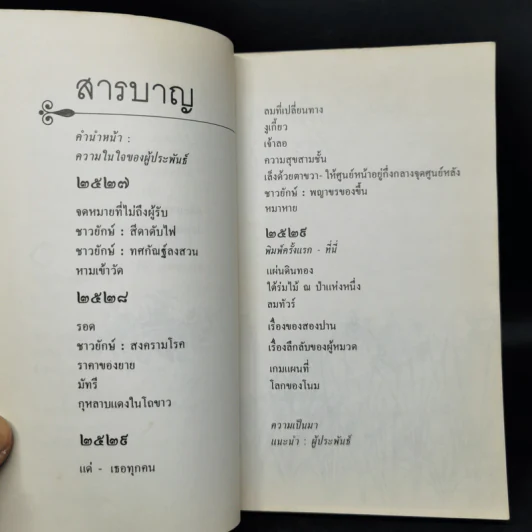 สารบาญ
คำนำหน้า :
ความในใจของผู้ประพันธ์
๒๕๒๗
จดหมายที่ไม่ถึงผู้รับ
ชาวยักษ์ : สีดาดับไฟ
ชาวยักษ์ : ทศกัณฐ์ลงสวน
หามเข้าวัด
๒๕๒๘
รอด
ชาวยักษ์ : สงครามโรค
ราคาของยาย
มัทรี
กุหลาบแดงในโถขาว
๒๕๒๙
แด่ - เธอทุกคน
ลมที่เปลี่ยนทาง
งูเกี้ยว
เจ้าลอ
ความสุขสามชั้น
เล็งด้วยตาขวา- ให้ศูนย์หน้าอยู่กึ่งกลางจุดศูนย์หลัง
ชาวยักษ์ : พญาขรของขึ้น
หมาหาย
๒๕๒๙
พิมพ์ครั้งแรก - ที่นี่
แผ่นดินทอง
ใต้ร่มไม้ ณ ป่าแห่งหนึ่ง
ลมทัวร์
เรื่องของสองปาน
เรื่องลึกลับของผู้หมวด
เกมแผนที่
โลกของโนม
ความเป็นมา
แนะนำ : ผู้ประพันธ์